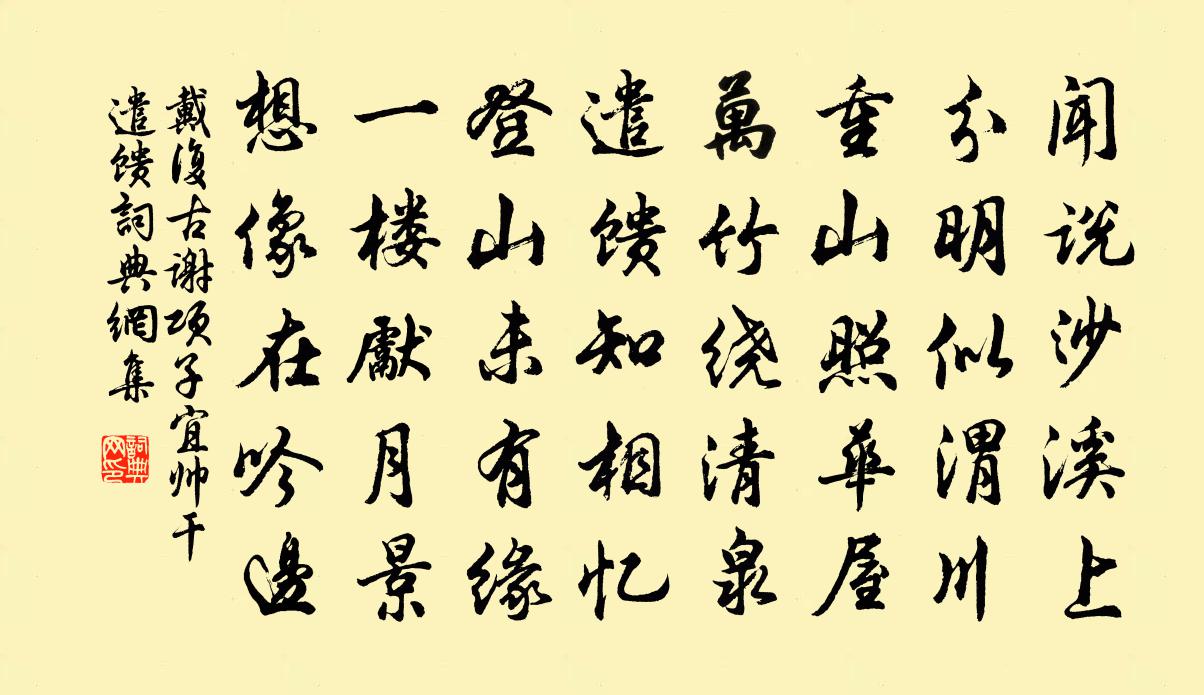 闻说沙溪上
分明似渭川
重山照華屋
萬竹绕清泉
遣馈知相忆
登山未有缘
一楼獻月景
想像在吟邊
戴復古谢项子宜帅干
遣馈詞典網集
詞典
网印